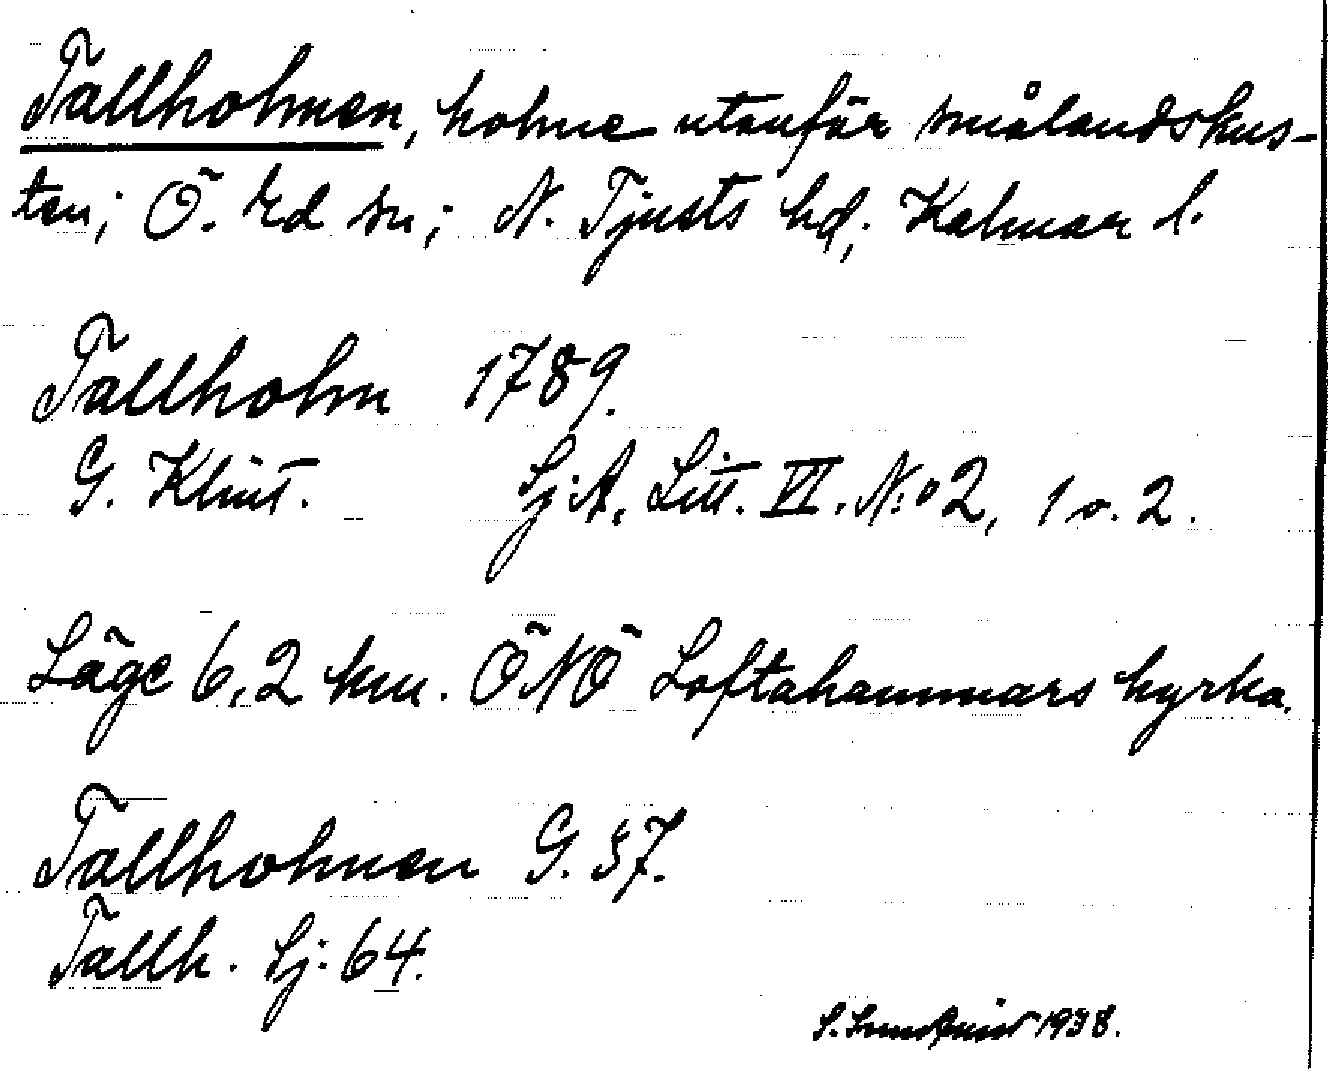 Tallholmen, holme utanför smålandskus-
ten; Ö. Ed sn; N. Tjusts hd; Kalmar l.
Tallholm 1789.
G. Klint. Sj:A, Litt. VI. N:o 2, 1 o. 2.
Läge 6,2 km. ÖNÖ Loftahammars kyrka.
Tallholmen G. 57.
Tallh. Sj: 64.
S. 1938.